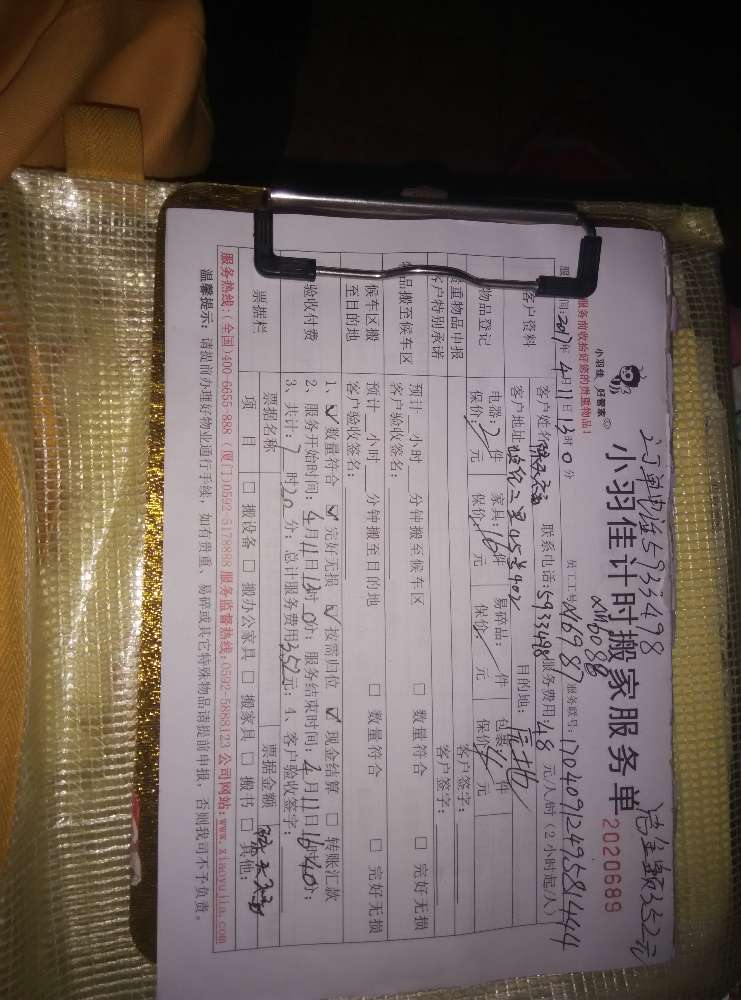 订单电话5933498 总金额352元
小羽佳 好管家
小羽佳计时搬家服务单 2020689
XM6088
服务前收验好您的贵重物品!
间:2017年4月11日13时0分 员工工号XM6987 服务联号:17040912495581444
客户资料 客户姓名 联系电话:5933498 服务费用:48元/人/时(2小时起/人)
客户地址 目的地:
物品登记 电器:2件 家具:16件 易碎品: 件 包裹 件
保价: 元 保价: 元 保价: 元 保价 元
重物品申报 客户签字:
客户特别承诺 客户签字:
品搬至候车区 预计 小时 分钟搬至候车区 □ 数量符合 □ 完好无损
客户验收签名:
候车区搬至目的地 预计 小时 分钟搬至目的地 □ 数量符合 □ 完好无损
客户验收签名:
验收付费 1、☑ 数量符合 ☑ 完好无损 ☑ 按需归位 ☑ 现金结算 □ 转账汇款
2、服务开始时间:4月11日13时0分;服务结束时间:4月11日16时40分;
3、共计:7时20分;总计服务费用352元;4、客户验收签字:
票据栏 票据名称 票据金额
项目 □ 搬设备 □ 搬办公家具 □ 搬家具 □ 搬书 □ 其他:
服务热线:(全国)400-6655-888 (厦门)0592-5178888 服务监督热线:0592-5888123 公司网站:www.xiaoyujia.com
温馨提示:请提前办理好物业通行手续,如有贵重、易碎或其它特殊物品请提前申报,否则我司不予负责。